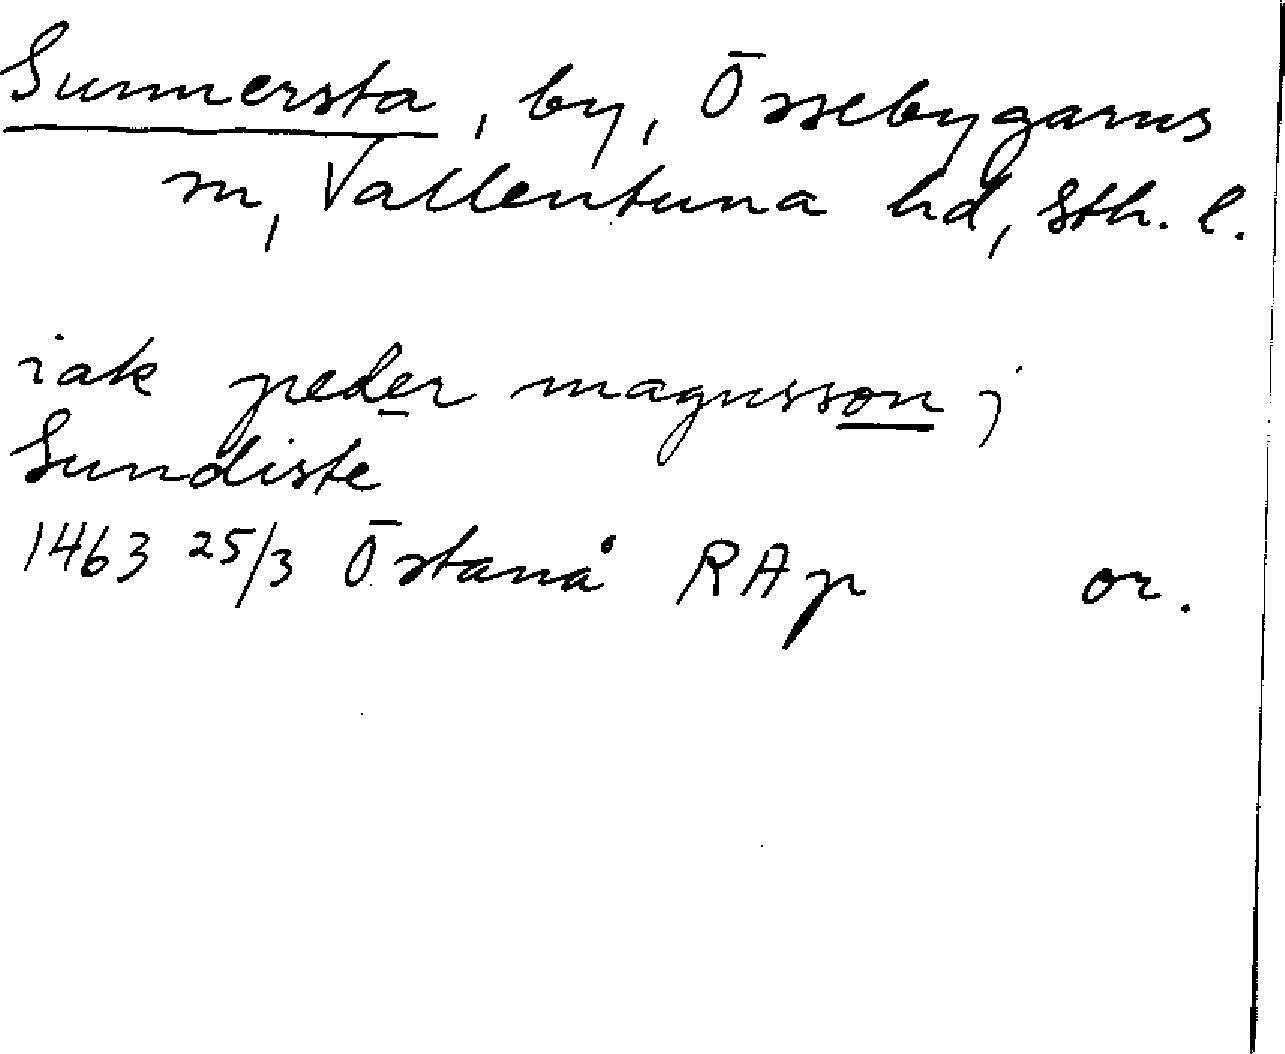 Sunnersta, by, Össebygarns
sn, Vallentuna hd, Sth. l.
iak peder magnusson j
Sundiste
1463 25/3 Östanå RAp or.